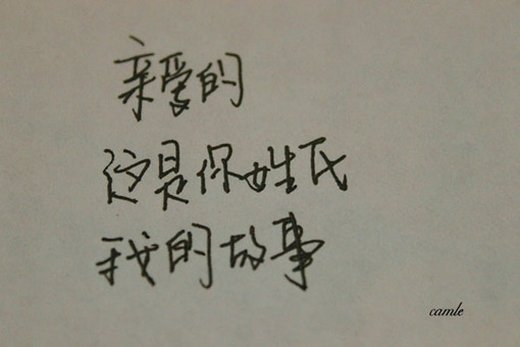 亲爱的
这是你姓氏
我的故事
camle